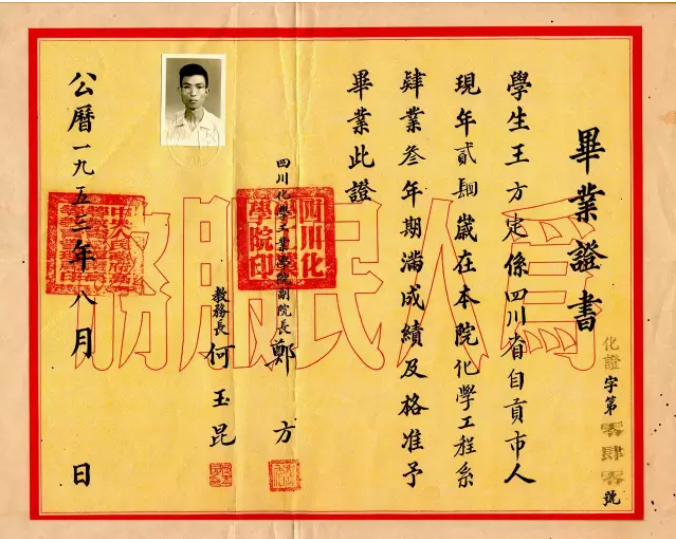 畢業證書
化證字第零肆零號
學生王方定係四川省自貢市人
現年貳肆歲在本院化學工程系
肄業叁年期滿成績及格准予
畢業此證
四川化學工業學院副院長 鄭方
教務長 何玉昆
公曆一九五三年八月 日
爲人民服務
四川化
學院印